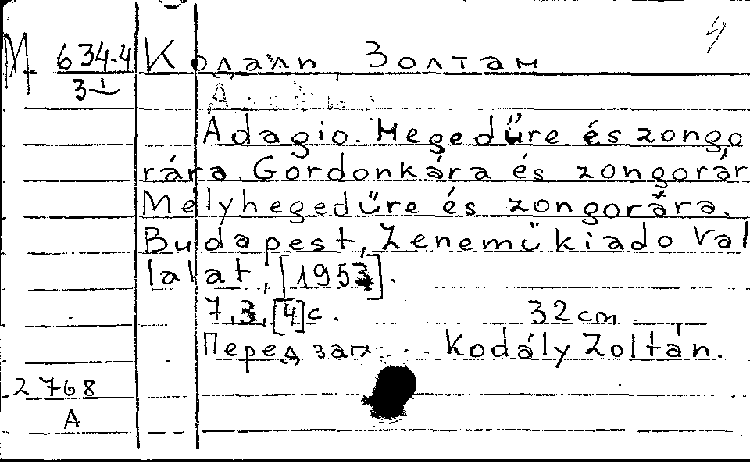 M 634-4 Кодали Золтан
3-1
Adagio. Hegedűre és zongo
rára. Gordonkára és zongorár
Mélyhegedűre és zongorára.
Budapest, Zeneműkiado Val
lalat, [1953].
7,3,[4]с. 32 cm
Перед заг. Kodály Zoltán.
2768
A